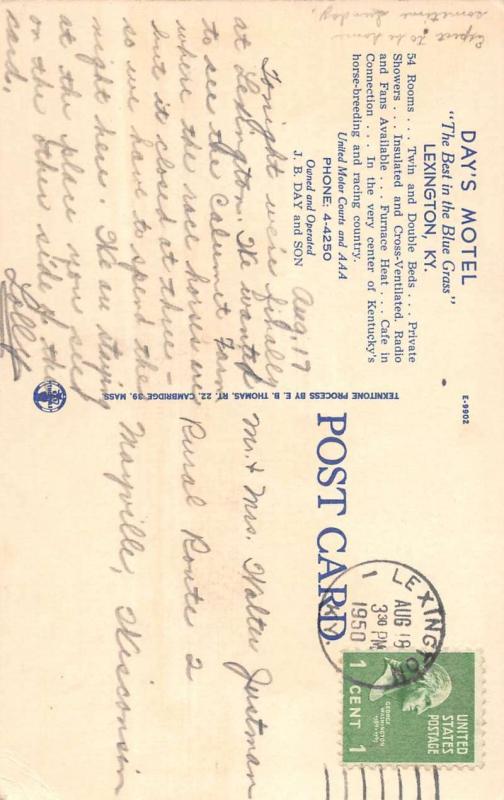 DAY'S MOTEL
"The Best in the Blue Grass"
LEXINGTON, KY.
54 Rooms . . . Twin and Double Beds . . . Private
Showers . . . Insulated and Cross-Ventilated. Radio
and Fans Available . . . Furnace Heat . . . Cafe in
Connection . . . In the very center of Kentucky's
horse-breeding and racing country.
United Motor Courts and AAA
PHONE: 4-4250
Owned and Operated
J. B. DAY and SON
Aug. 17
Tonight were finally
at Lexington. We wanted
to see the Calumet Farm
where the race horses are
but it closed at three -
so we have to spend the
night here. We are staying
at the place you see
on the other side of this
card.
Lolly
Expect to be home
sometime Sunday.
E-9902
POST CARD
TEKNITONE PROCESS BY E. B. THOMAS, RT. 22, CAMBRIDGE 39, MASS.
LEXINGTON
AUG 19
3 30 PM
1950
KY.
1
UNITED
STATES
POSTAGE
GEORGE
WASHINGTON
1789-1797
1 CENT 1
Mr. & Mrs. Walter Justman
Rural Route 2
Mayville, Wisconsin